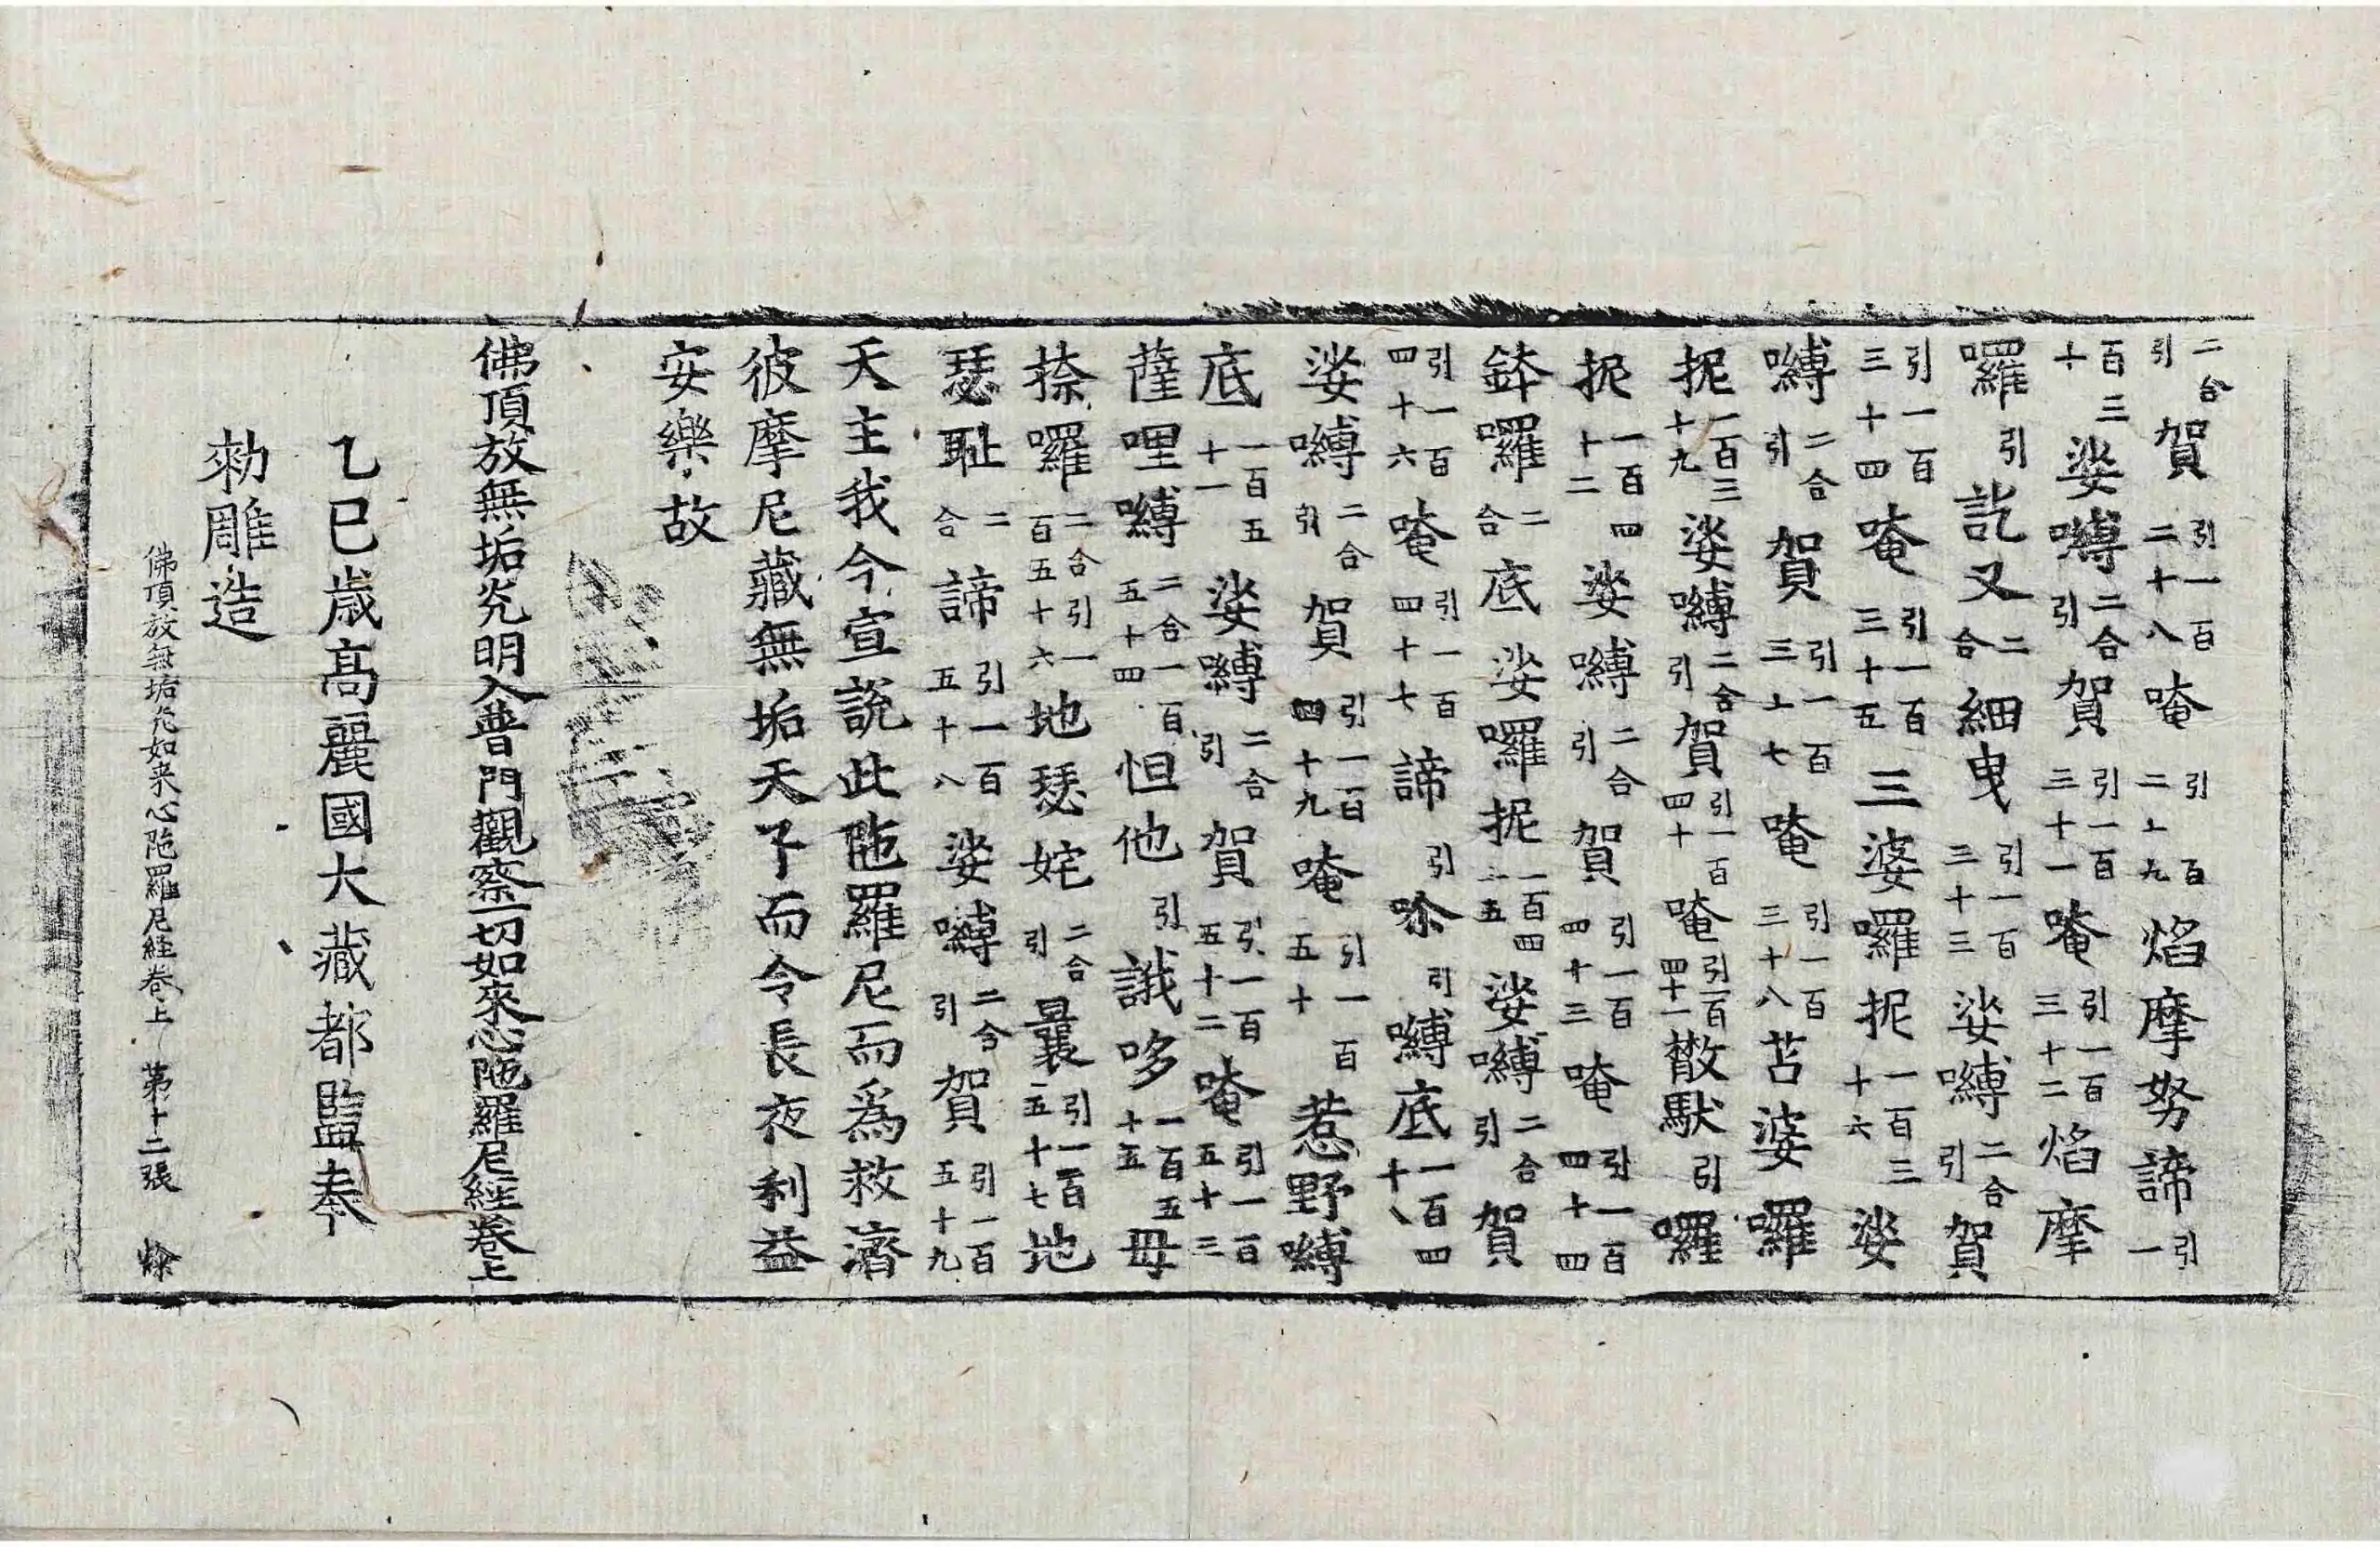 二合引賀引一百二十八唵引百二十九焰摩努諦引一
百三十娑嚩二合引賀引一百三十一唵引一百三十二焰摩
囉引訖叉二合細曳引一百三十三娑嚩二合引賀
引一百三十四唵引一百三十五三婆囉抳一百三十六娑
嚩二合引賀引一百三十七唵引一百三十八苫婆囉
抳一百三十九娑嚩二合引賀引一百四十唵引一百四十一㪚馱引囉
抳一百四十二娑嚩二合引賀引一百四十三唵引一百四十四
鉢囉二合底娑囉抳一百四十五娑嚩二合引賀
引一百四十六唵引一百四十七諦引引嚩底一百四十八
娑嚩二合引賀引一百四十九唵引一百五十惹野嚩
底一百五十一娑嚩二合引賀引一百五十二唵引一百五十三
薩哩嚩二合一百五十四怛他引誐哆一百五十五母
捺囉二合引一百五十六地瑟姹二合引曩引一百五十七地
瑟恥二合諦引一百五十八娑嚩二合引賀引一百五十九
天主我今宣說此陁羅尼而爲救濟
彼摩尼藏無垢天子而令長夜利益
安樂故
佛頂放無垢光明入普門觀察一切如來心陁羅尼經卷上
乙巳歲高麗國大藏都監奉
勑雕造
佛頂放無垢光如来心陁羅尼経卷上 第十二張